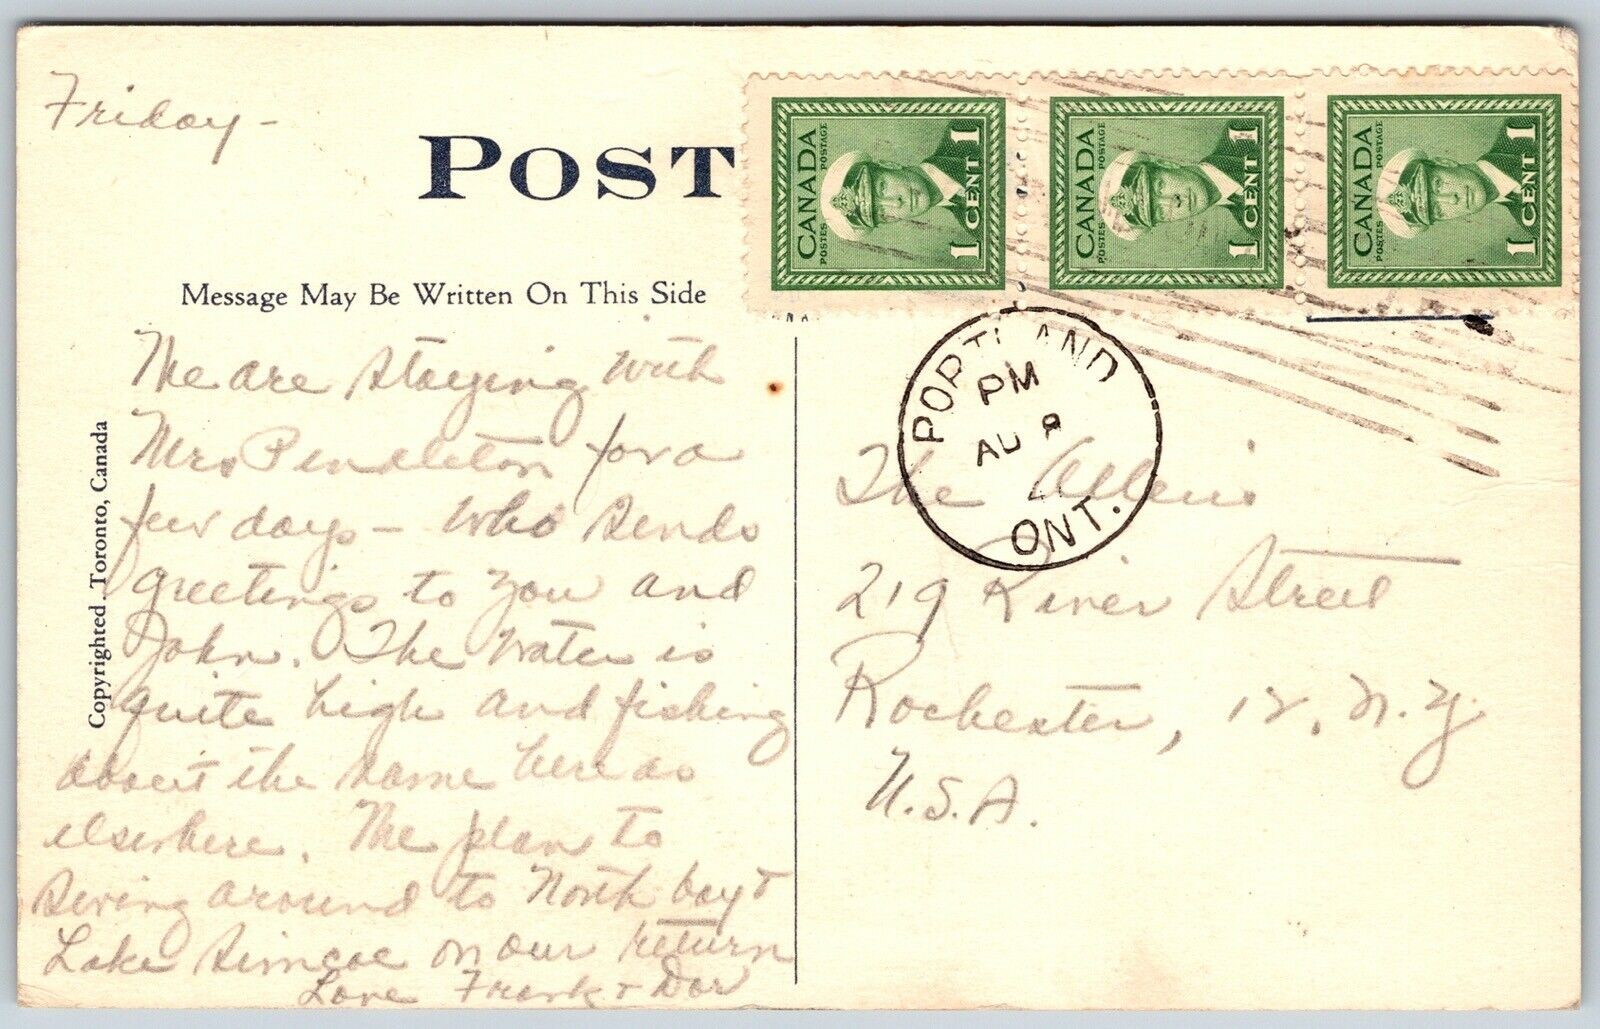 Friday -
POST
CANADA
POSTES POSTAGE
1 CENT 1
CANADA
POSTES POSTAGE
1 CENT 1
CANADA
POSTES POSTAGE
1 CENT 1
Message May Be Written On This Side
Copyrighted. Toronto, Canada
We are staying with
Mrs Pendleton for a
few days - who sends
greetings to you and
John. The water is
quite high and fishing
about the same here as
elsewhere. We plan to
swing around to North bay &
Lake Simcoe on our return
Love Frank & Dor
PORTLAND
PM
AU 8
ONT.
The Allens
219 River Street
Rochester, 12, N.Y.
U.S.A.